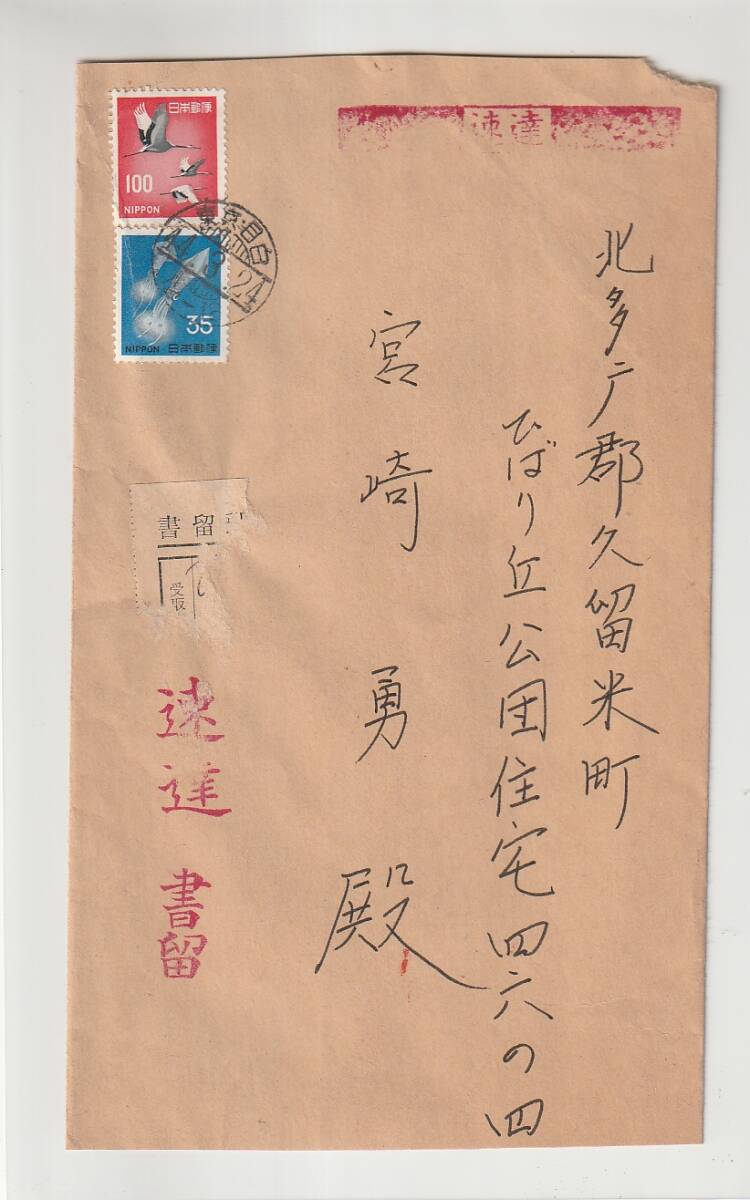 速達
北多广郡久留米町
ひばり丘公団住宅四六の四
宮崎勇殿
日本郵便
100
NIPPON
東京・目白
24
35
NIPPON・日本郵便
書留
受取
速達
書留